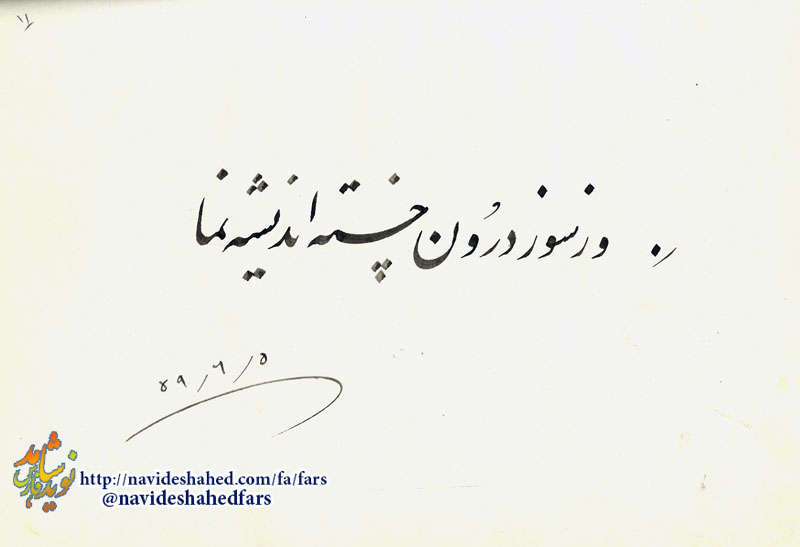 ۱۱
وز سوز درون خسته اندیشه نما
۵۹/۶/۵
نوید شاهد فارس
http://navideshahed.com/fa/fars
@navideshahedfars